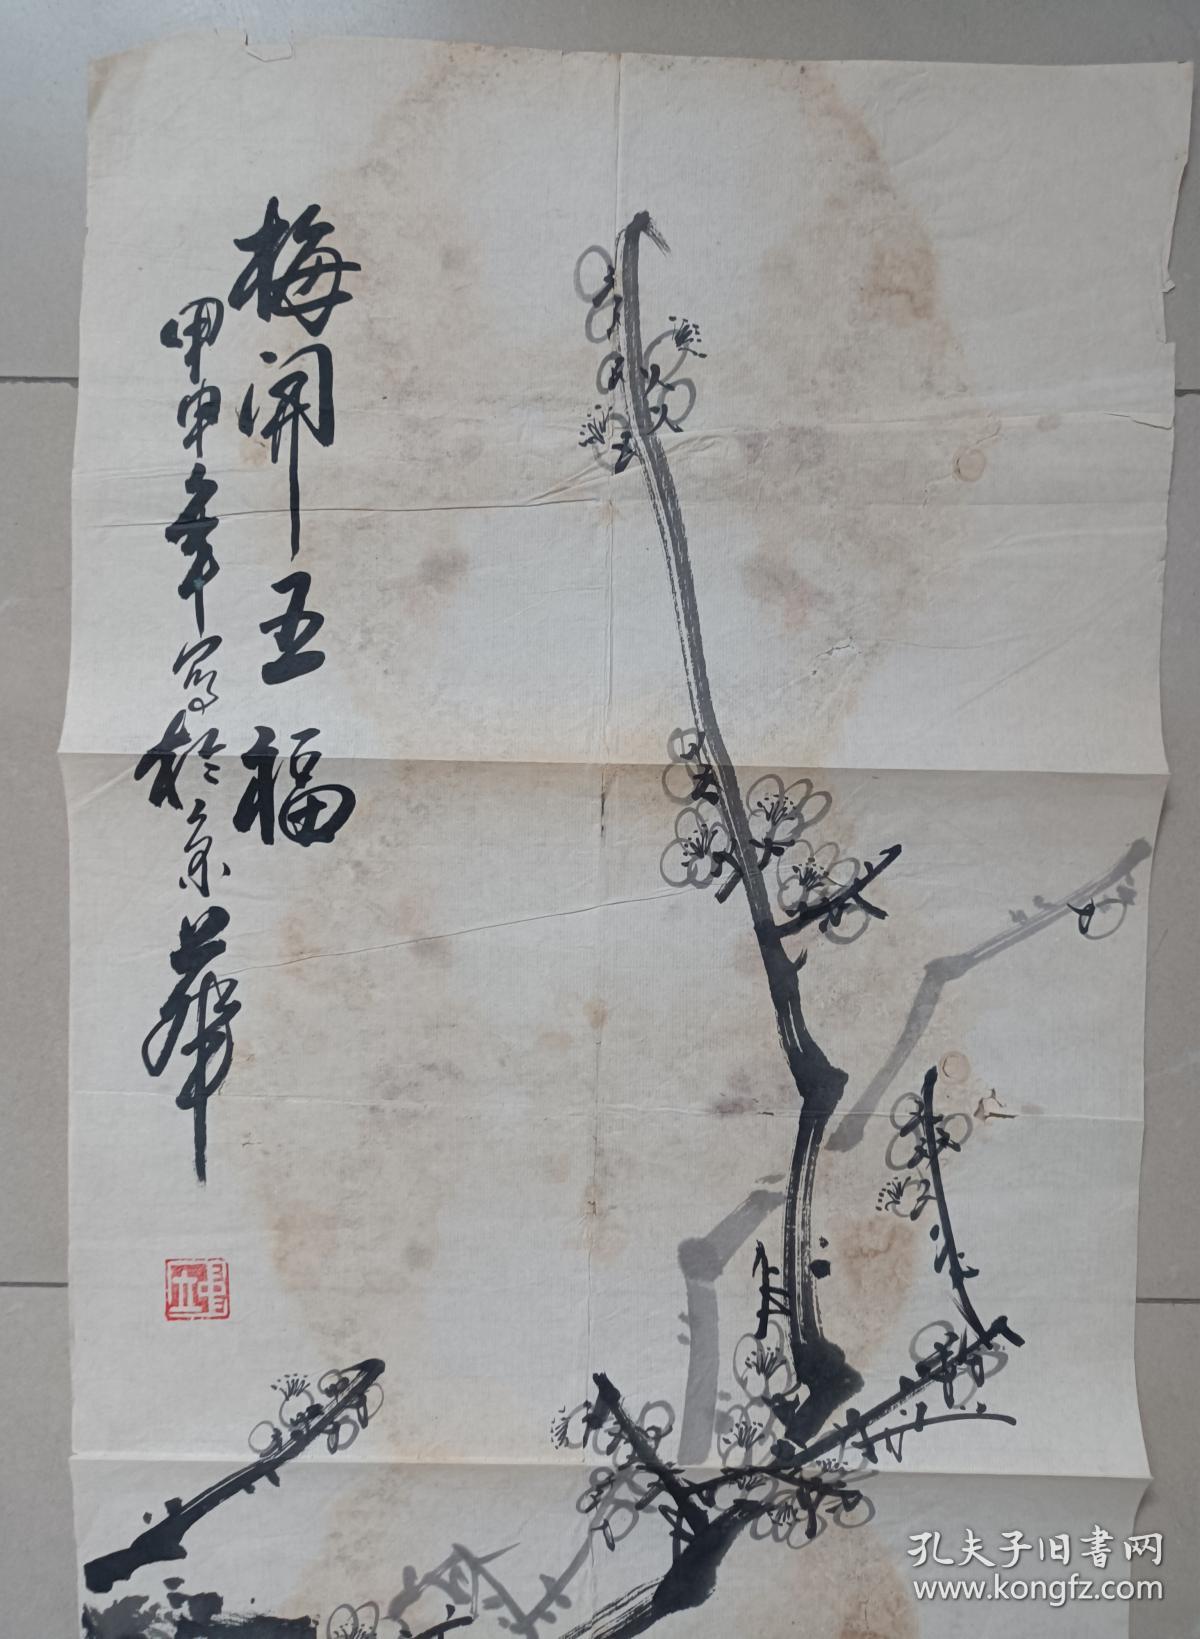 梅開五福
甲申年寫於京華
孔夫子旧書网
www.kongfz.com